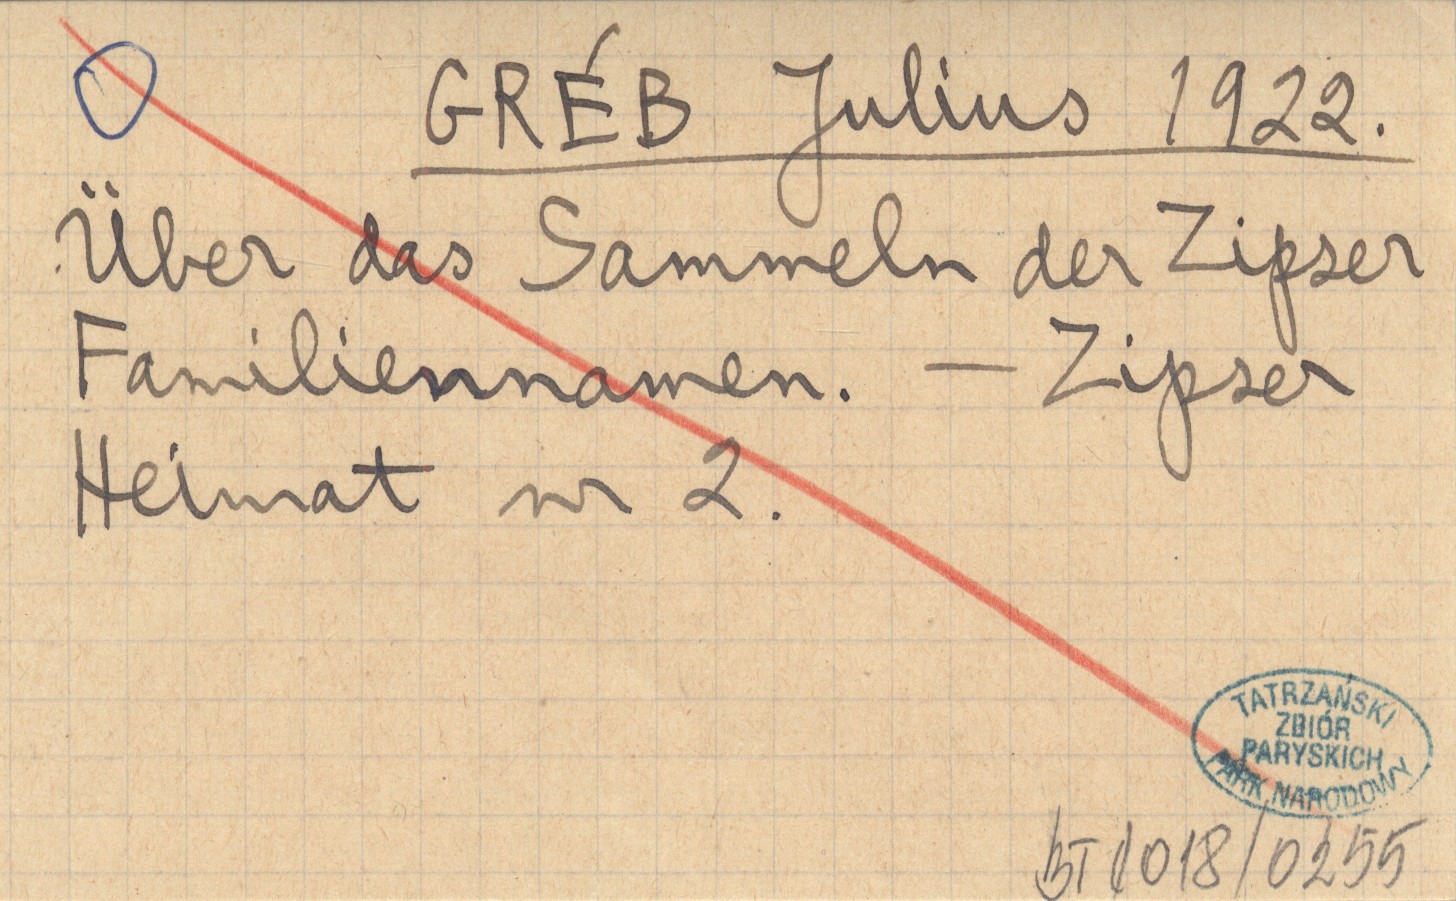 GRÉB Julius 1922.
Über das Sammeln der Zipser
Familiennamen. — Zipser
Heimat nr 2.
TATRZAŃSKI
ZBIÓR
PARYSKICH
PARK NARODOWY
BT/018/0255